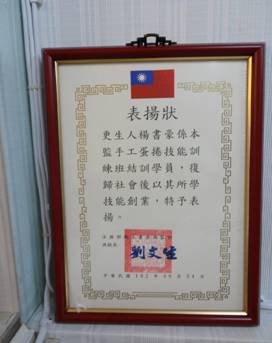 表揚狀
更生人楊書豪係本
監手工蛋捲技能訓
練班結訓學員，復
歸社會後以其所學
技能創業，特予表
揚。
劉文生
中華民國 102 年